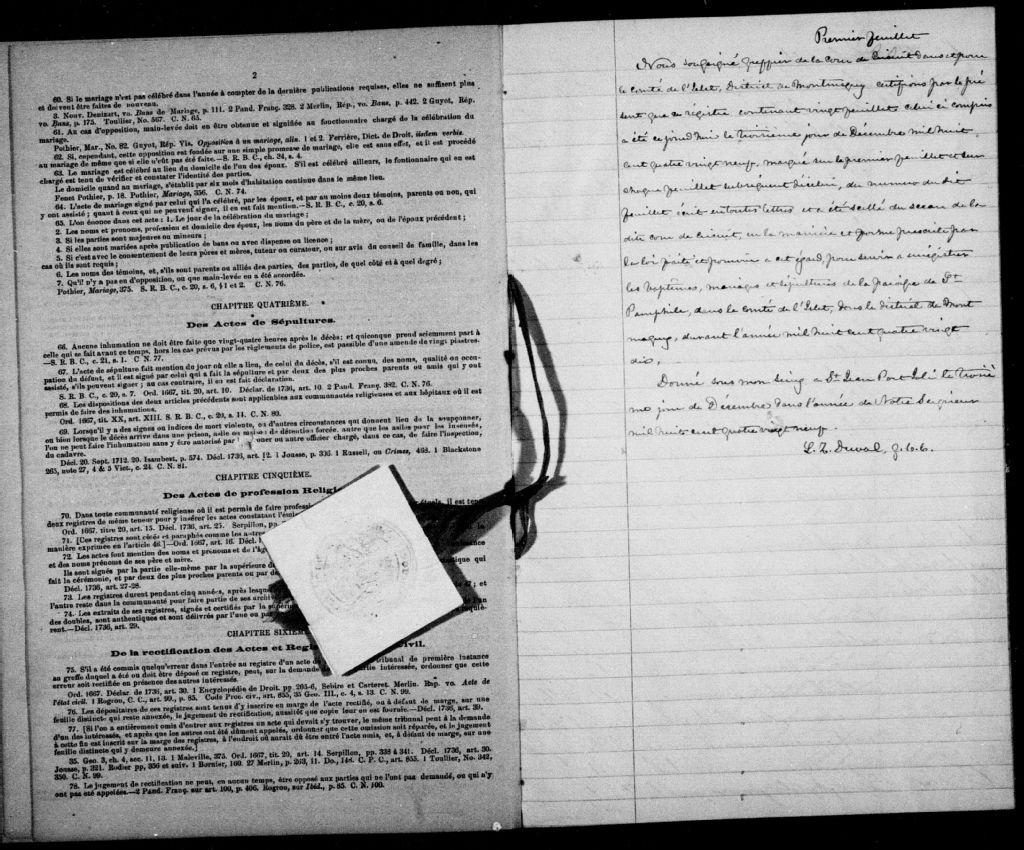 2
60. Si le mariage n'est pas célébré dans l'année à compter de la dernière publications requises, elles ne suffisent plus
et doivent être faites de nouveau.
3. Nouv. Denizart, vo. Bans de Mariage, p. 111. 2 Pand. Franç. 328. 2 Merlin, Rép, vo. Bans, p. 442. 2 Guyot, Rép.
vo. Bans, p. 175. Toullier, No. 567. C. N. 65.
61. Au cas d'opposition, main-levée doit en être obtenue et signifiée au fonctionnaire chargé de la célébration du
mariage.
Pothier, Mar., No. 82. Guyot, Rép. Vis. Opposition à un mariage, alin. 1 et 2. Ferrière, Dict. de Droit, iisdem verbis.
62. Si, cependant, cette opposition est fondée sur une simple promesse de mariage, elle est sans effet, et il est procédé
au mariage de même que si elle n'eût pas été faite.—S. R. B. C., ch. 34, s. 4.
63. Le mariage est célébré au lieu du domicile de l'un des époux. S'il est célébré ailleurs, le fontionnaire qui en est
chargé est tenu de vérifier et constater l'identité des parties.
Le domicile quand au mariage, s'établit par six mois d'habitation continue dans le même lieu.
Fenet Pothier, p. 18. Pothier, Mariage, 356. C. N. 74.
64. L'acte de mariage signé par celui qui l'a célébré, par les époux, et par au moins deux témoins, parents ou non, qui
y ont assisté; quant à ceux qui ne peuvent signer, il en est fait mention.—S. R. B. C., c. 20, s. 6.
65. L'on énonce dans cet acte: 1. Le jour de la célébration du mariage;
2. Les noms et prénoms, profession et domicile des époux, les noms du père et de la mère, ou de l'époux précédent;
3. Si les parties sont majeures ou mineures;
4. Si elles sont mariées après publication de bans ou avec dispense ou licence;
5. Si c'est avec le consentement de leurs pères et mères, tuteur ou curateur, ou sur avis du conseil de famille, dans les
cas où ils sont requis;
6. Les noms des témoins, et, s'ils sont parents ou alliés des parties, des parties, de quel côté et à quel degré;
7. Qu'il n'y a pas eu d'opposition, ou que main-levée en a été accordée.
Pothier, Mariage, 375. S. R. B. C., c. 20, s. 6, §1 et 2. C. N. 76.
CHAPITRE QUATRIÈME.
Des Actes de Sépultures.
66. Aucune inhumation ne doit être faite que vingt-quatre heures après le décès; et quiconque prend sciemment part à
celle qui se fait avant ce temps, hors les cas prévus par les règlements de police, est passible d'une amende de vingt piastres.
—S. R. B. C., c. 21, s. 1. C N. 77.
67. L'acte de sépulture fait mention du jour où elle a lien, de celui du décès, s'il est connu, des noms, qualité ou occu-
pation du défunt, et il est signé par celui qui a fait la sépulture et par deux des plus proches parents ou amis qui y ont
assisté, s'ils peuvent signer; au cas contraire, il en est fait déclaration.
S. R. B. C., c. 20, s. 7. Ord. 1667, tit. 20, art. 10. Déclar. de 1736, art. 10. 2 Pand. Franç. 382. C. N. 76.
68. Les dispositions des deux articles précédents sont applicables aux communautés religieuses et aux hôpitaux où il est
permis de faire des inhumations.
Ord. 1667, tit. XX, art. XIII. S. R. B. C., c. 20, s. 14. C. N. 80.
69. Lorsqu'il y a des signes ou indices de mort violente, ou d'autres circonstances qui donnent lieu de la soupçonner,
ou bien lorsque le décès arrive dans une prison, asile ou maison de détention forcée, autre que les asiles pour les insensés,
l'on ne peut faire l'inhumation sans y être autorisé par oner ou autre officier chargé, dans ce cas, de faire l'inspection,
du cadavre.
Décl. 20. Sept. 1712. 20. Isambest, p. 574. Décl. 1736, art. 12. 1 Jousse, p. 336. 1 Russell, on Crimes, 468. 1 Blackstone
265, note 27, 4 & 5 Vict., c. 24. C. N. 81.
CHAPITRE CINQUIÈME.
Des Actes de profession Religi
70. Dans toute communauté religieuse où il est permis de faire profession éls, il est tenu
deux registres de même teneur pour y insérer les actes constatant l'émi
Ord. 1667, titre 20, art. 15. Décl. 1736, art. 25. Serpillon, pp.
71. [Ces registres sont côtés et paraphés comme les autres
manière exprimée en l'article 46.]—Ord. 1667, art. 16. Décl.
72. Les actes font mention des noms et prénoms et de l'âge
et des noms prénoms de ses père et mère.
Ils sont signés par la partie elle-même par la supérieure de tique qui
fait la cérémonie, et par deux des plus proches parents ou par de
Décl. 1736, art. 27-28.
73. Les registres durent pendant cinq années, après lesque 47; et
l'autre reste dans la communauté pour faire partie de ses archi
74. Les extraits de ses registres, signés et certifiés par la supérie de l'un
des doubles, sont authentiques et sont délivrés par l'une ou pa requiè-
rent.—Décl. 1736, art. 29.
CHAPITRE SIXIÈM
De la rectification des Actes et Regis ivil.
75. S'il a été commis quelqu'erreur dans l'entrée au registre d'un acte de tribunal de première instance
au greffe duquel a été ou doit être déposé ce registre, peut, sur la demande de rtie intéressée, ordonner que cette
erreur soit rectifiée en présence des autres intéressés.
Ord. 1667. Déclar. de 1736, art. 30. 1 Encyclopédie de Droit. pp 265-6, Sebire et Carteret. Merlin. Rep. vo. Acte de
l'état civil. 1 Rogron, C. C., art. 99., p. 85. Code Proc. civ., art. 855, 35 Geo. III., c. 4, s. 13. C. N. 99.
76. Les dépositaires de ces registres sont tenus d'y inscrire en marge de l'acte rectifié, ou à défaut de marge, sur une
feuille distincte qui reste annexée, le jugement de rectification, aussitôt que copie leur en est fournie.—Décl. 1736, art. 30.
77. [Si l'on a entièrement omis d'entrer aux registres un acte qui devrait s'y trouver, le même tribunal peut à la demande
d'un des intéressés, et après que les autres ont été dûment appelés, ordonner que cette omission soit réparée, et le jugement
à cette fin est inscrit sur la marge des registres, à l'endroit où aurait dû être entré l'acte omis, et, à défaut de marge, sur une
feuille distincte qui y demeure annexée.]
35. Geo. 3, ch. 4, sec. 11, 13. 1 Maleville, 375. Ord. 1667, tit. 20, art. 14. Serpillon, pp. 338 à 341. Décl. 1736, art. 30.
Jousse, p. 321. Rodier pp, 356 et suiv. 1 Bornier, 160. 27 Merlin, p. 263, 11. Do., 148. C. P. C., art. 855. 1 Toullier, No. 342,
350. C. N. 99.
78. Le jugement de rectification ne peut, en aucun temps, être opposé aux parties qui ne l'ont pas demandé, ou qui n'y
ont pas été appelées.—2 Pand. Franç. sur art. 100, p. 406. Rogron, sur Ibid., p. 85. C. N. 100.
Premier feuillet
Nous soussigné greffier de la cour de Circuit dans et pour
le comté de l'Islet, District de Montmagny certifions par le pré
sent que ce régistre contenant vingt feuillets celui ci compris
a été ce jourd'hui le troisième jour de Décembre mil huit
cent quatre vingt neuf, marqué sur le premier feuillet et sur
chaque feuillet subséquent d'icelui, du numéro du dit
feuillet écrit en toutes lettres et a été scellé du sceau de la
dite cour de Circuit, en la manière et forme prescrite par
la loi faite et pourvue à cet égard, pour servir à enrégistrer
les baptêmes, mariages et sépultures de la paroisse de St
Pamphile, dans le comté de l'Islet, dans le district de Mont
magny, durant l'année mil huit cent quatre vingt
dix,
Donné sous mon seing à St Jean Port Joli le troisiè
me jour de Décembre dans l'année de Notre Seigneur
mil huit cent quatre vingt neuf.
L. Z. Duval, g.c.c.